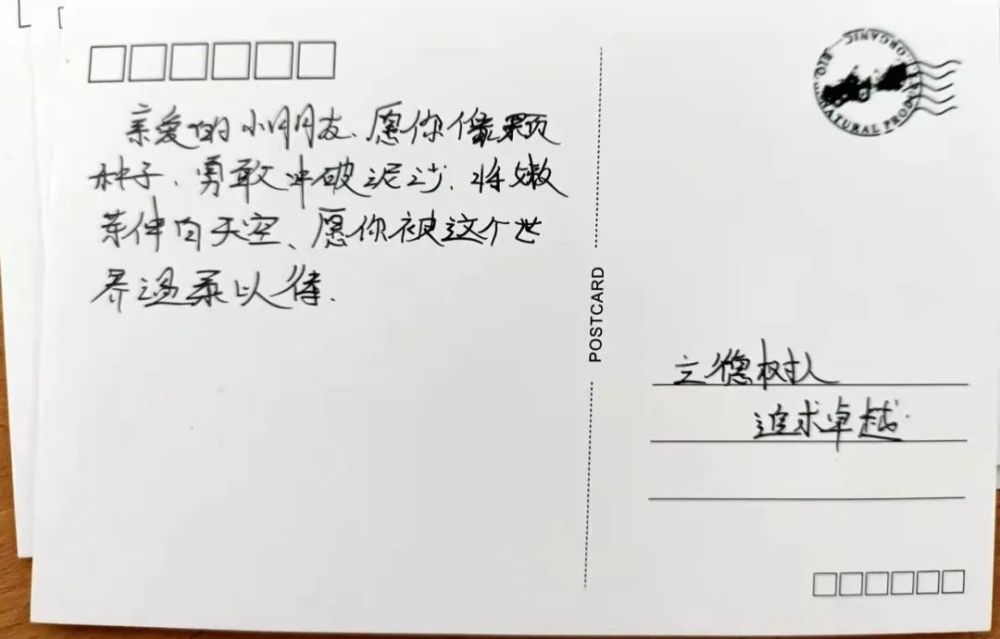 亲爱的小朋友、愿你像颗
种子、勇敢冲破泥沙、将嫩
芽伸向天空、愿你被这个世
界温柔以待.
POSTCARD
立德树人
追求卓越.
ORGANIC
BIO
NATURAL PRODUCT